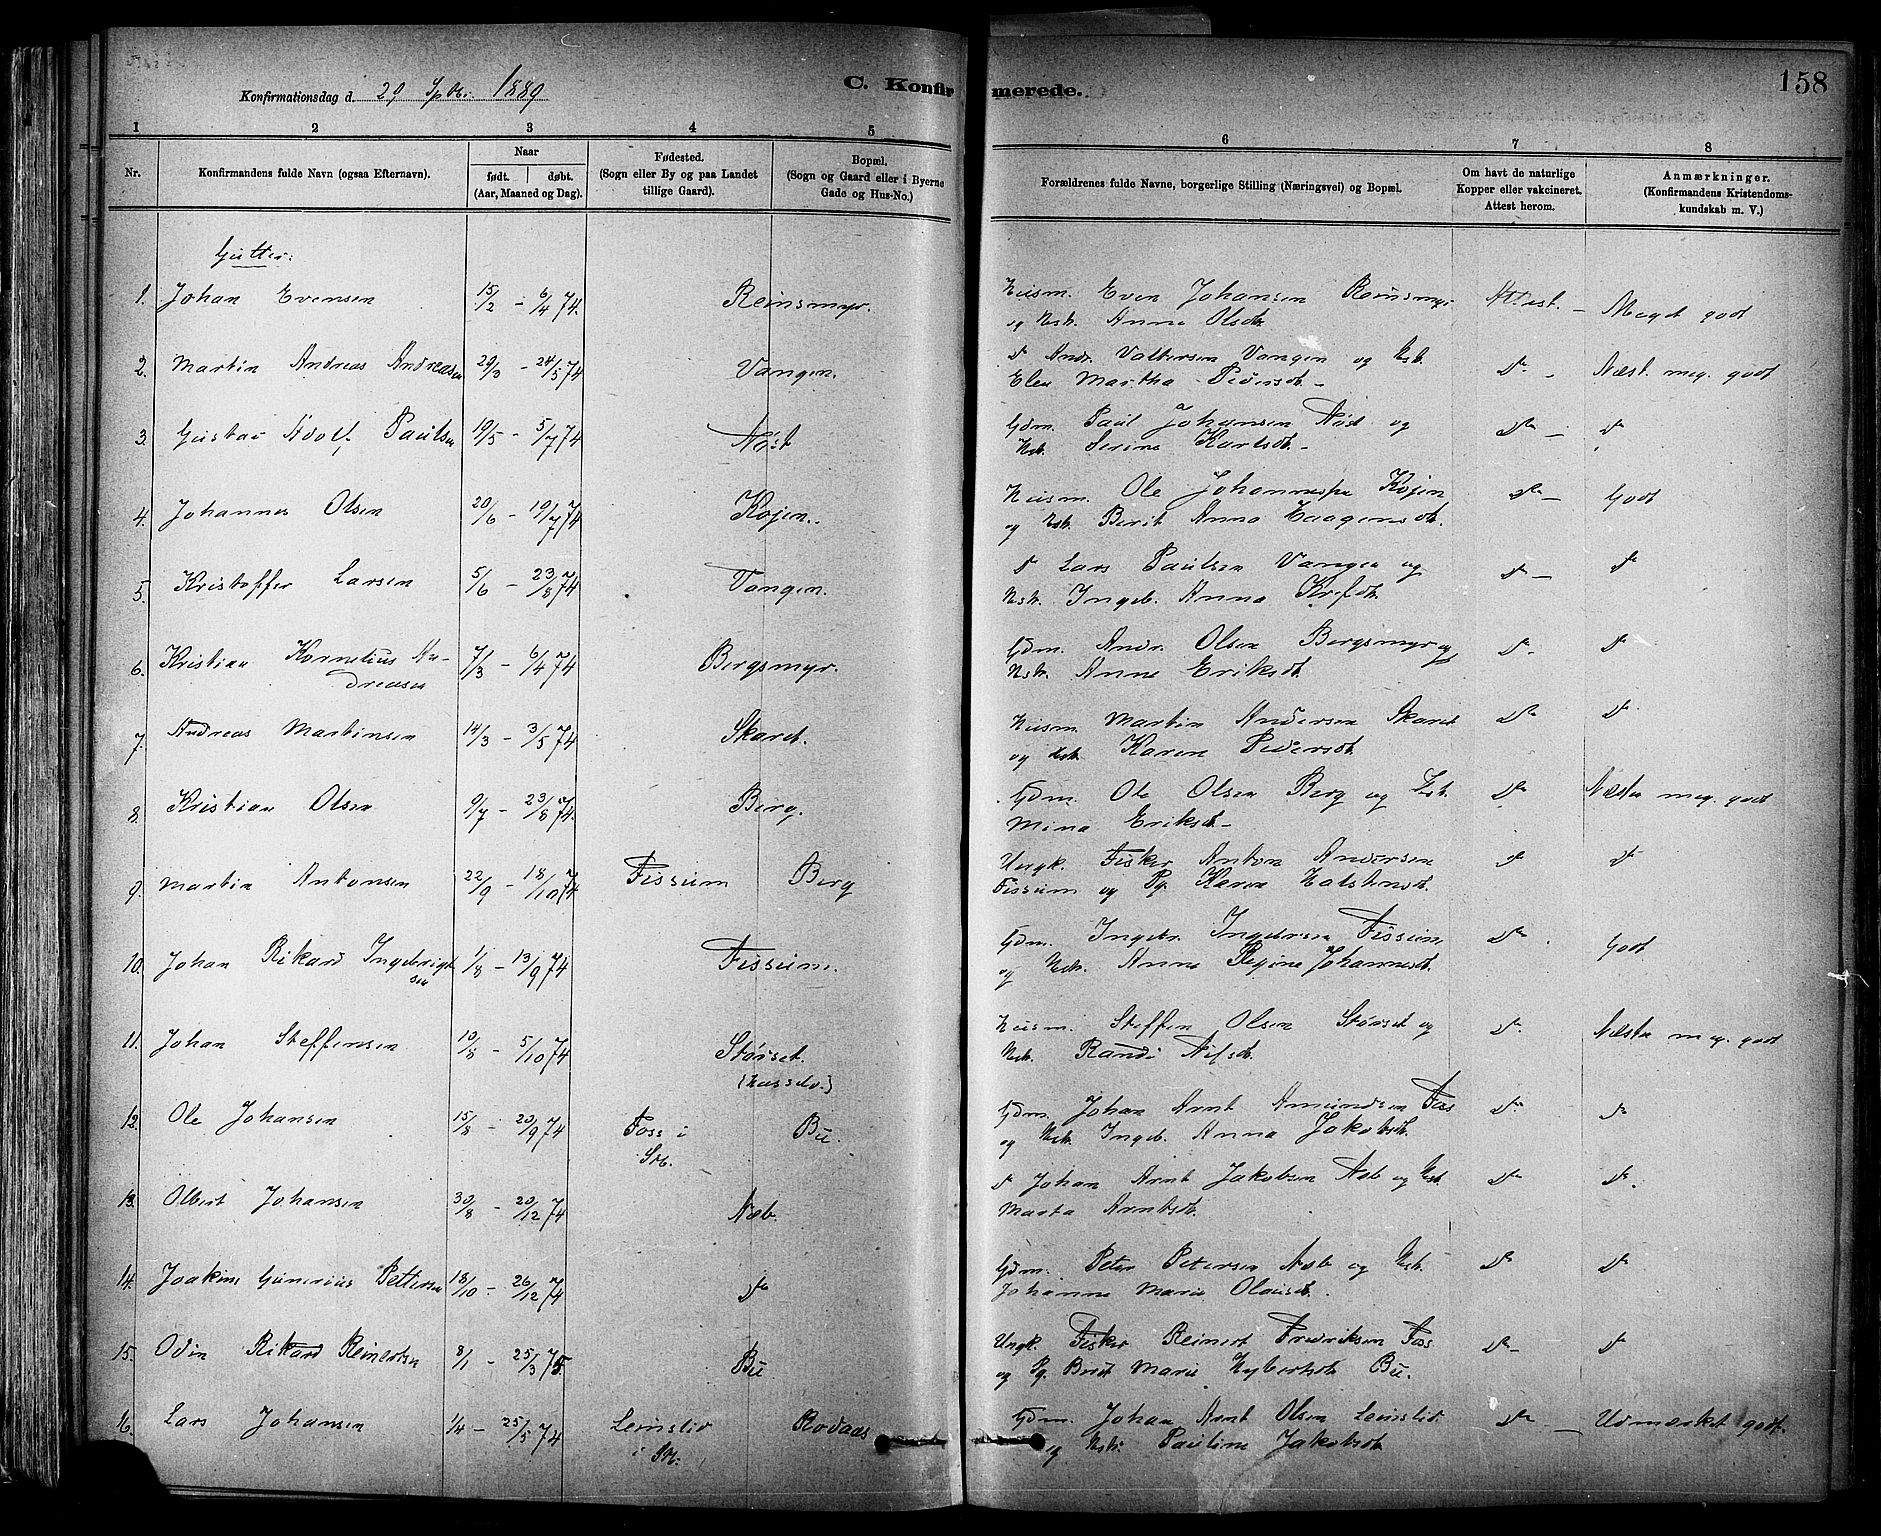 Konfirmationsdag d. 29 Sptbr. 1889 C. Konfirmerede. 158
1 2 3 4 5 6 7 8
Nr. Konfirmandens fulde Navn (ogsaa Efternavn). Naar født. døbt. (Aar, Maaned og Dag). Fødested. (Sogn eller By og paa Landet tillige Gaard). Bopæl. (Sogn og Gaard eller i Byerne Gade og Hus-No.) Forældrenes fulde Navne, borgerlige Stilling (Næringsvei) og Bopæl. Om havt de naturlige Kopper eller vakcineret. Attest herom. Anmærkninger. (Konfirmandens Kristendomskundskab m. V.)
Gutter:
1. Johan Evensen 15/2 - 6/4 74. Reinsmyr. Husm. Even Johansen Reinsmyr Attest. - Meget godt
og Hstr. Anne Olsdt.
2. Martin Andreas Andreasen 29/3 - 24/5 74 Vangen. do Andr. Valtersen Vangen og Hst. do - Næst. meg. godt
Elen Martha Pedersdt. -
3. Gustav Adolf Paulsen 19/5 - 5/7 74 Nøst Gdm. Paul Johansen Nøst og do - do
Hstr. Serine Karlsdt. -
4. Johannes Olsen 20/6 - 19/7 74 Kojen. Husm. Ole Johannesen Kojen do - Godt
og Hstr. Berit Anna Haagensdt.
5. Kristoffer Larsen 5/6 - 23/8 74 Vangen. do Lars Paulsen Vangen og do - do
Hstr. Ingeb. Anna Krifdt.
6. Kristian Kornelius Andreasen 7/3 - 6/4 74 Bergsmyr. Gdm. Andr. Olsen Bergsmyr og do - do
Hstr. Anne Eriksdt.
7. Andreas Martinsen 14/3 - 3/5 74 Skaret. Husm. Martin Andersen Skaret do do
og Hstr. Karen Pedersdt.
8. Kristian Olsen 9/7 - 23/8 74. Berg. Gdm. Ole Olsen Berg og Hst. do Næsten meg. godt
Mina Eriksdt. -
9. Martin Antonsen 22/9 - 18/10 74 Fissum Berg Ungk. Fisker Anton Andersen do do
Fissum og Pg. Karen Halstensdt.
10. Johan Rikard Ingebrigtsen 1/8 - 13/9 74 Fissum. Gdm. Ingebr. Ingebrsen Fissum do Godt
og Hstr. Anne Regine Johannesdt.
11. Johan Steffensen 10/8 - 5/10 74 Størset. (Husselv.) Husm. Steffen Olsen Størset og do Næsten meg. godt
Hstr. Randi Nilsdt.
12. Ole Johansen 15/8 - 20/9 74 Foss i Stb. Bu. Gdm. Johan Arnt Amundsen Foss do do
og Hstr. Ingeb. Anna Jakobsdt.
13. Olbert Johansen 30/8 - 20/12 74 Næb. do Johan Arnt Jakobsen Næb og Hst. do do.
Marta Arntsdt.
14. Joakim Gunerius Pettersen 18/10 - 26/12 74 do Gdm. Peter Petersen Næb og Hstr. do do
Johanna Marie Olausdt.
15. Odin Rikard Reinertsen 8/1 - 25/3 75. Bu Ungk. Fisker Reinert Fredriksen Foss do - do
og Pg. Berit Marie Hybertsdt. Bu.
16. Lars Johansen 1/4 - 25/5 74 Leinslid i Stb. Rodaas Gdm. Johan Arnt Olsen Leinslid do - Udmærket godt.
og Hstr. Pauline Jakobsdt.